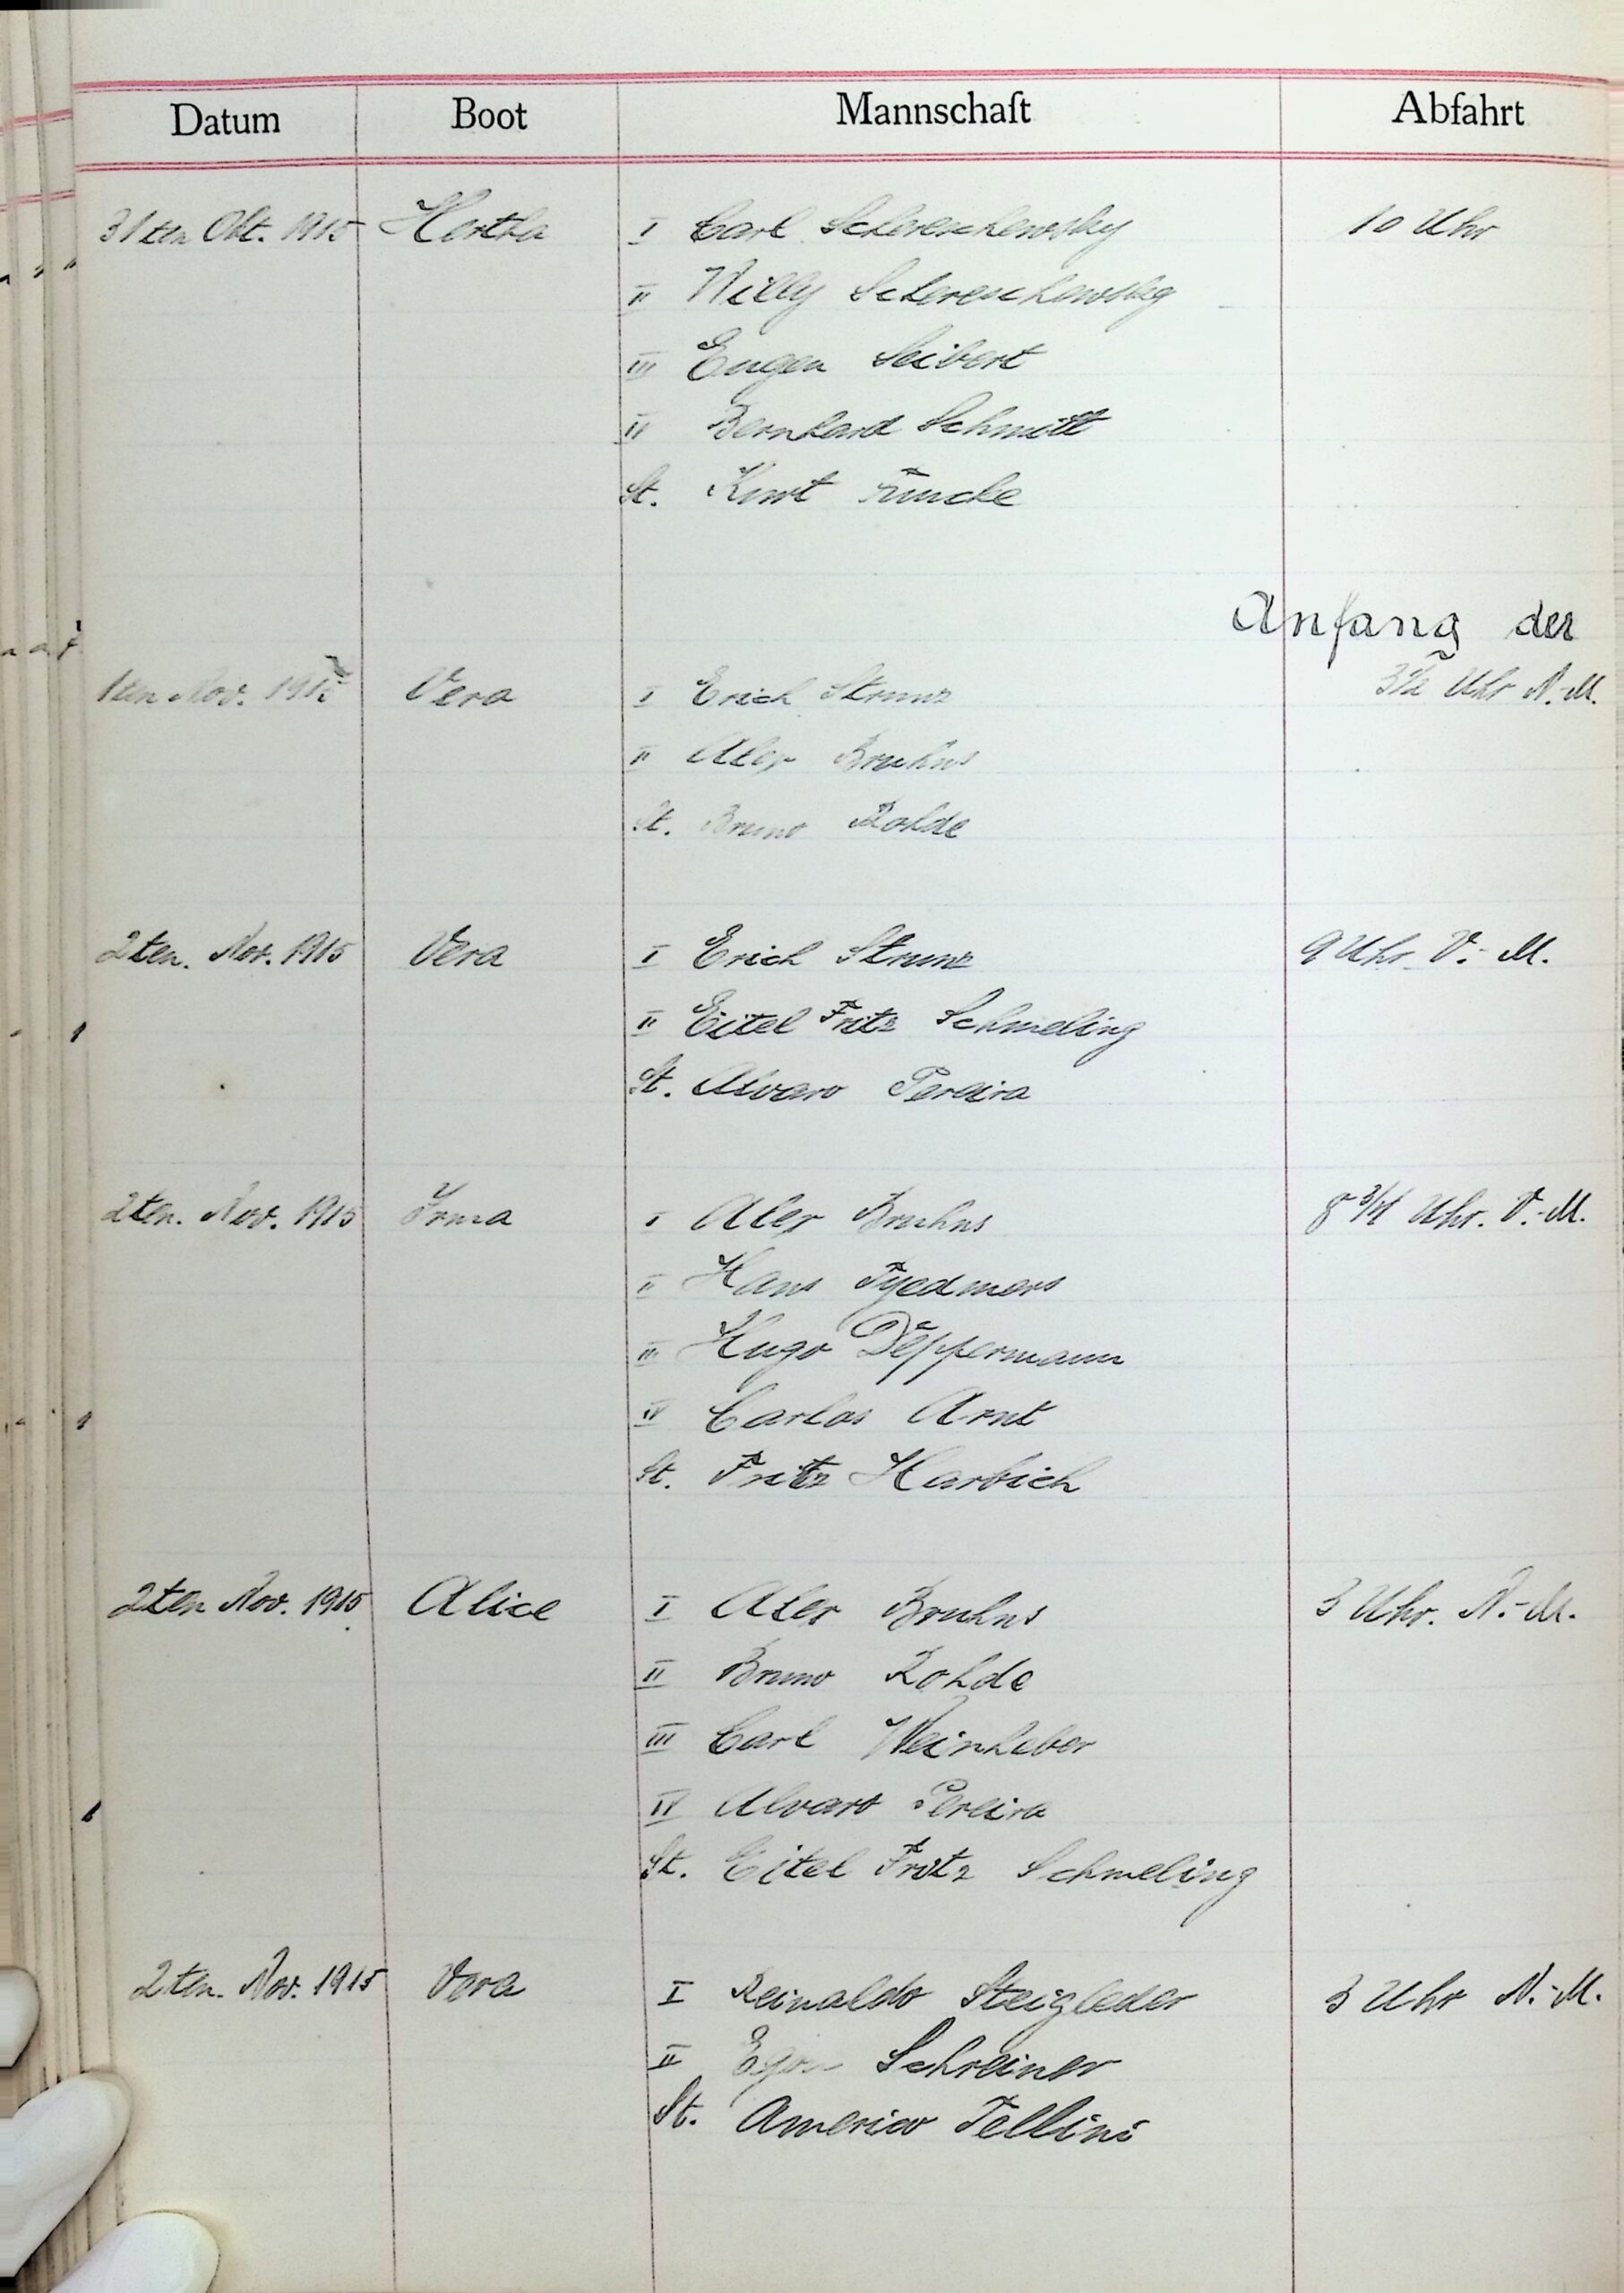 Datum Boot Mannschaft Abfahrt
31ten Okt. 1915 Hertha I Carl Schereschewsky 10 Uhr
II Willy Schereschewsky
III Eugen Seibert
IV Bernhard Schmitt
St. Kurt Funcke
Anfang der
1ten Nov. 1915 Vera I Erich Strunz 3½ Uhr N.-M.
II Alex Bruhns
St. Bruno Rohde
2ten. Nov. 1915 Vera I Erich Strunz 9 Uhr V.-M.
II Eitel Fritz Schmeling
St. Alvaro Pereira
2ten. Nov. 1915 Irma I Alex Bruhns 8 3/4 Uhr. V.-M.
II Hans Tyedmers
III Hugo Deppermann
IV Carlos Arnt
St. Fritz Harbich
2ten Nov. 1915 Alice I Alex Bruhns 3 Uhr. N.-M.
II Bruno Rohde
III Carl Weinheber
IV Alvaro Pereira
St. Eitel Fritz Schmeling
2ten. Nov. 1915 Vera I Reinaldo Steigleder 3 Uhr N.-M.
II Egon Schreiner
St. Americo Tellini